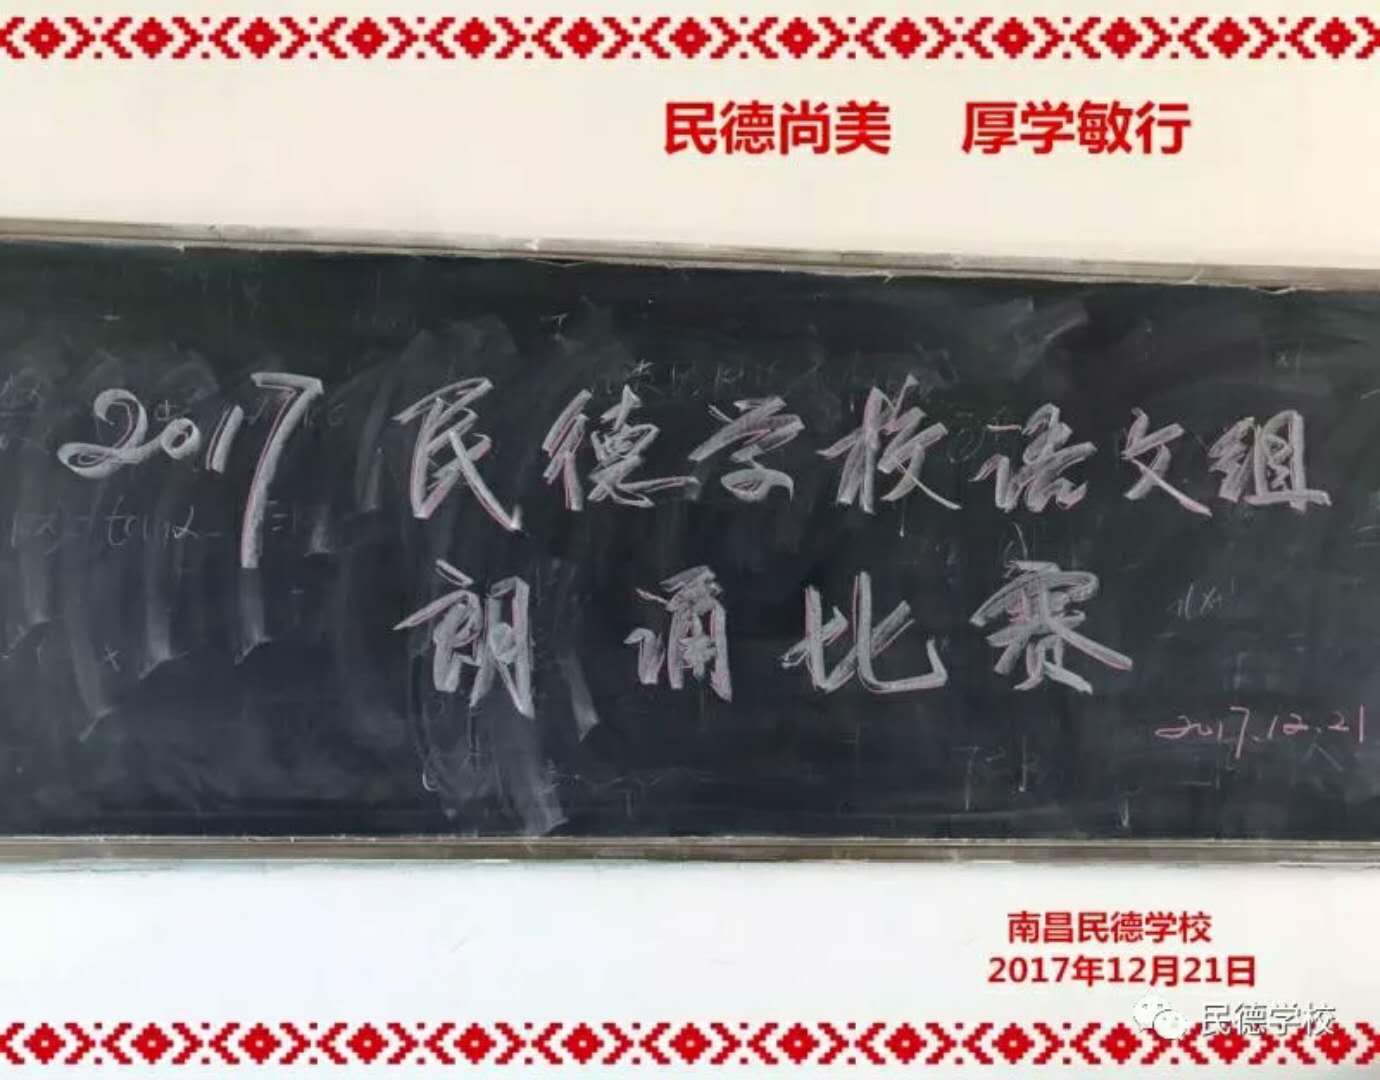 民德尚美 厚学敏行
2017 民德学校语文组
朗诵比赛
2017.12.21
南昌民德学校
2017年12月21日
民德学校